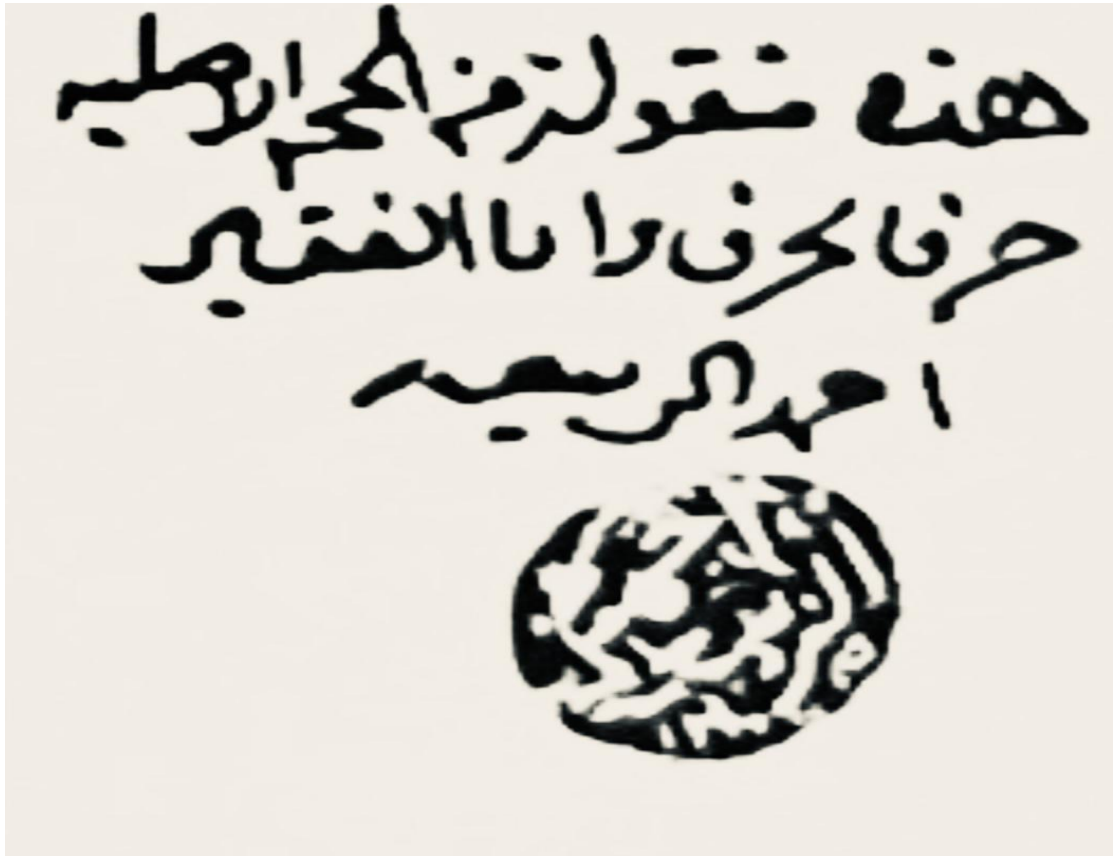 هذه منقولة من الحجج الاصليه
حرفا بحرف وانا الفقير
احمد الربيعي